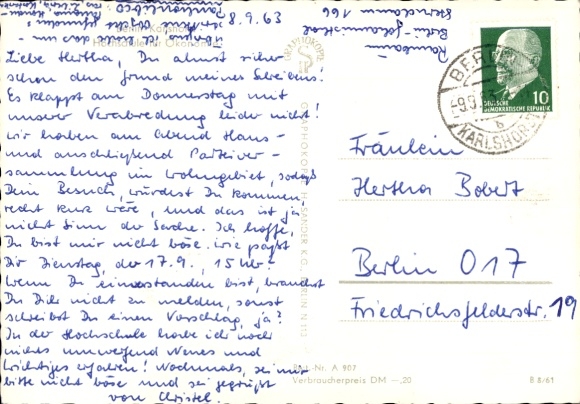 8.9.63
Liebe Hertha, Du ahnst sicher
schon den Grund meines Schreibens!
Es klappt am Donnerstag mit
unserer Verabredung leider nicht!
Wir haben am Abend Haus-
und anschließend Parteiver-
sammlung im Wohngebiet, sodaß
Dein Besuch, würdest Du kommen
recht kurz wäre, und das ist ja
nicht Sinn der Sache. Ich hoffe,
Du bist mir nicht böse. Wie paßt
Dir Dienstag, der 17.9., 15 Uhr?
Wenn Du einverstanden bist, brauchst
Du Dich nicht zu melden, sonst
schreibst Du einen Vorschlag, ja?
In der Hochschule habe ich noch
nichts umwerfend Neues und
Wichtiges erfahren! Nochmals, sei mir
bitte nicht böse und sei gegrüßt
von Christel.
Berlin-Karlshorst
Hochschule für Ökonomie
Berlin-Johannisthal
Sterndamm 166
BERLIN
-9.9.63
b
KARLSHORST
DEUTSCHE
DEMOKRATISCHE REPUBLIK
10
Fräulein
Hertha Bobert
Berlin O 17
Friedrichsfelderstr. 19
Best.-Nr. A 907
Verbraucherpreis DM -,20
B 8/61